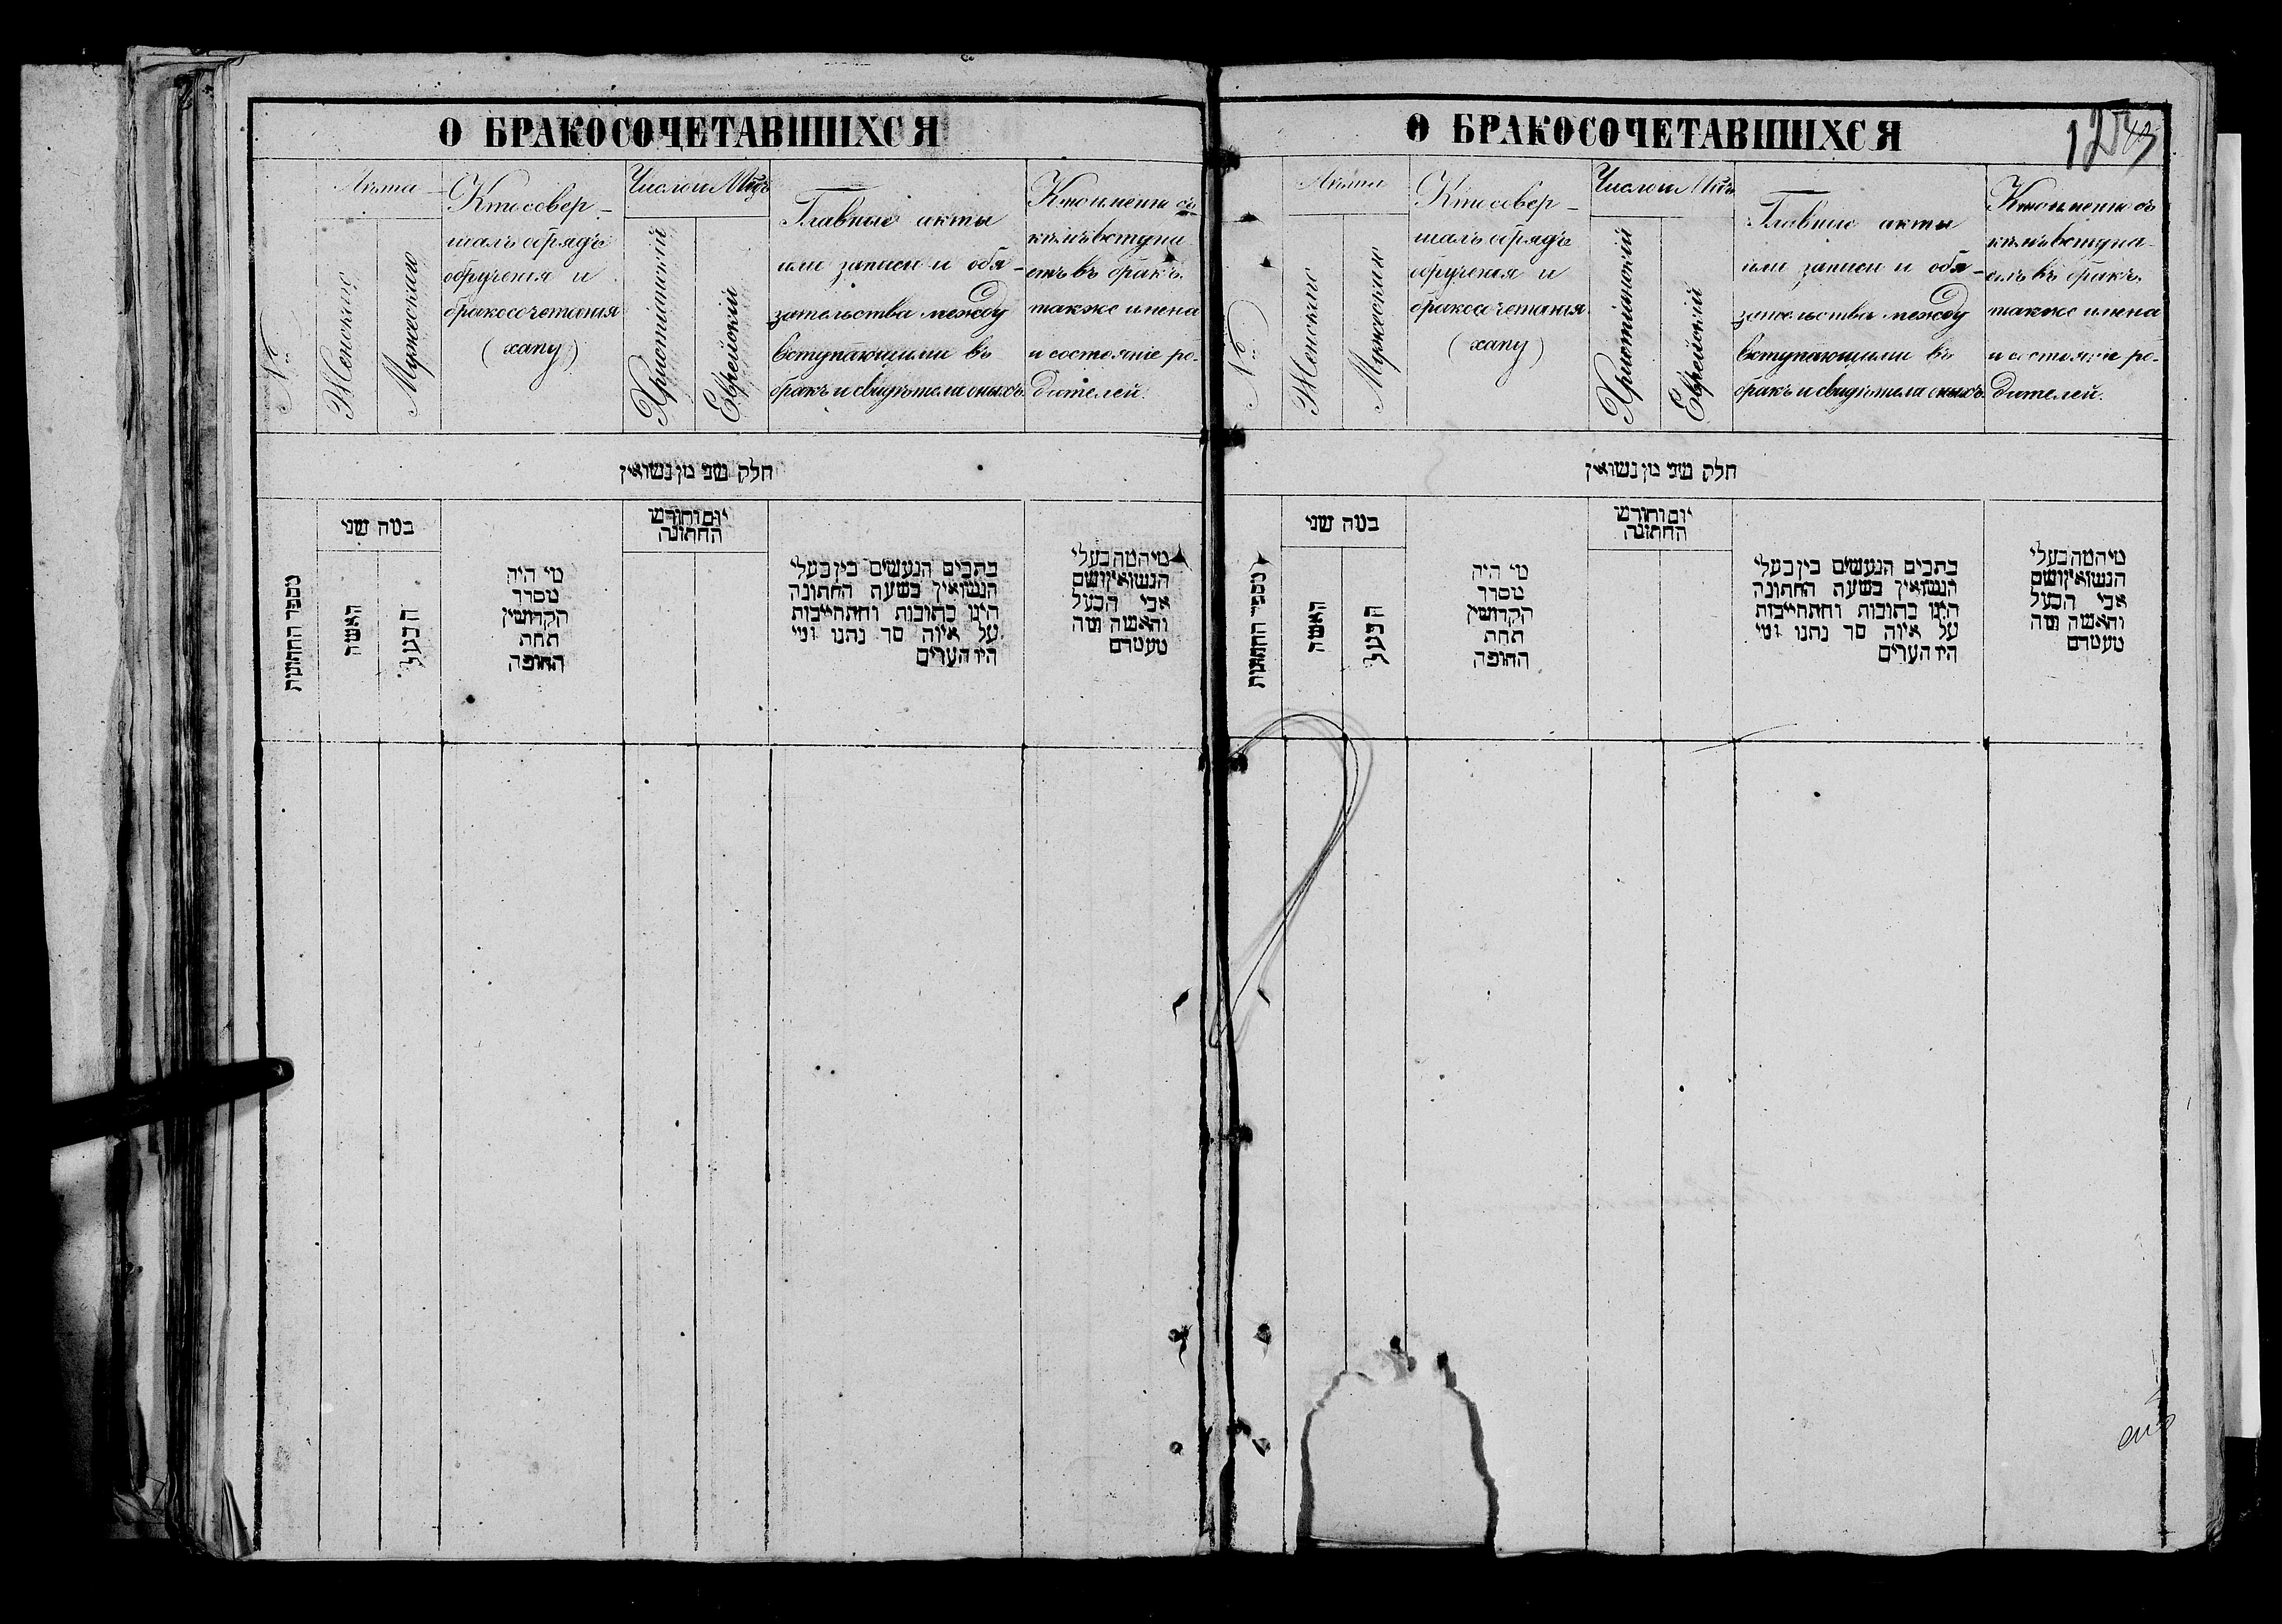 О БРАКОСОЧЕТАВШИХСЯ
№
Лѣта
Женскія
Мужескаго
Кто совер-
шалъ обрядъ
обрученія и
бракосочетанія
(хапу)
Число и Мѣцъ
Христіанскій
Еврейскій
Главные акты
или записи и обя-
зательства между
вступающими въ
бракъ и свидѣтели оныхъ.
Кто именно съ
кѣмъ вступа
етъ въ бракъ.
также имена
и состояніе ро-
дителей.
חלק שני מן נשואין
מספר החתונות
כמה שני
האשה
הבעל
מי היה
מסדר
הקדושין
תחת
החופה
יום וחודש
החתונה
כתבים הנעשים בין בעלי
הנשואין בשעת החתונה
היינו כתובות והתחייבות
על איזה סך נתנו ומי
היו העדים
מיהמה בעלי
הנשואין ושם
אבי הבעל
והאשה ומה
מעמדם
О БРАКОСОЧЕТАВШИХСЯ
№
Лѣта
Женскія
Мужескія
Кто совер-
шалъ обрядъ
обрученія и
бракосочетанія
(хапу)
Число и Мѣцъ
Христіанскій
Еврейскій
Главные акты
или записи и обя-
зательства между
вступающими въ
бракъ и свидѣтели оныхъ.
Кто именно съ
кѣмъ вступа-
етъ въ бракъ.
также имена
и состояніе ро-
дителей.
חלק שני מן נשואין
מספר החתונות
כמה שני
האשה
הבעל
מי היה
מסדר
הקדושין
תחת
החופה
יום וחודש
החתונה
כתבים הנעשים בין בעלי
הנשואין בשעת החתונה
היינו כתובות והתחייבות
על איזה סך נתנו ומי
היו העדים
מיהמה בעלי
הנשואין ושם
אבי הבעל
והאשה ומה
מעמדם